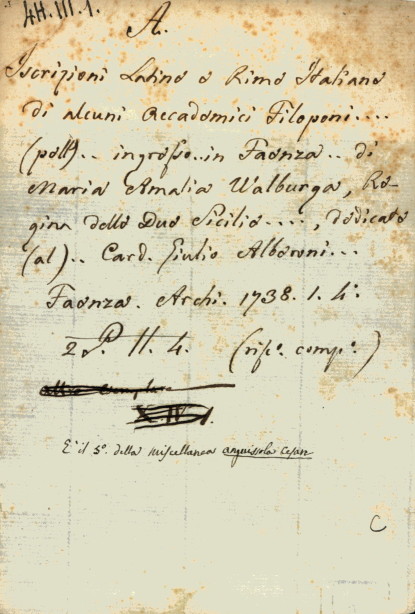 4H.III.1.
A.
Iscrizioni Latine e Rime Italiane
di alcuni Accademici Filoponi....
(pell).. ingresso..in Faenza.. di
Maria Amalia Walburga, Re-
gina delle Due Sicilie...., dedicate
(al).. Card. Giulio Alberoni...
Faenza. Archi. 1738. 1. 4:
2 P. II. 4. (risc. comp.)
È il 5º. della miscellanea anguissola Cesare
C